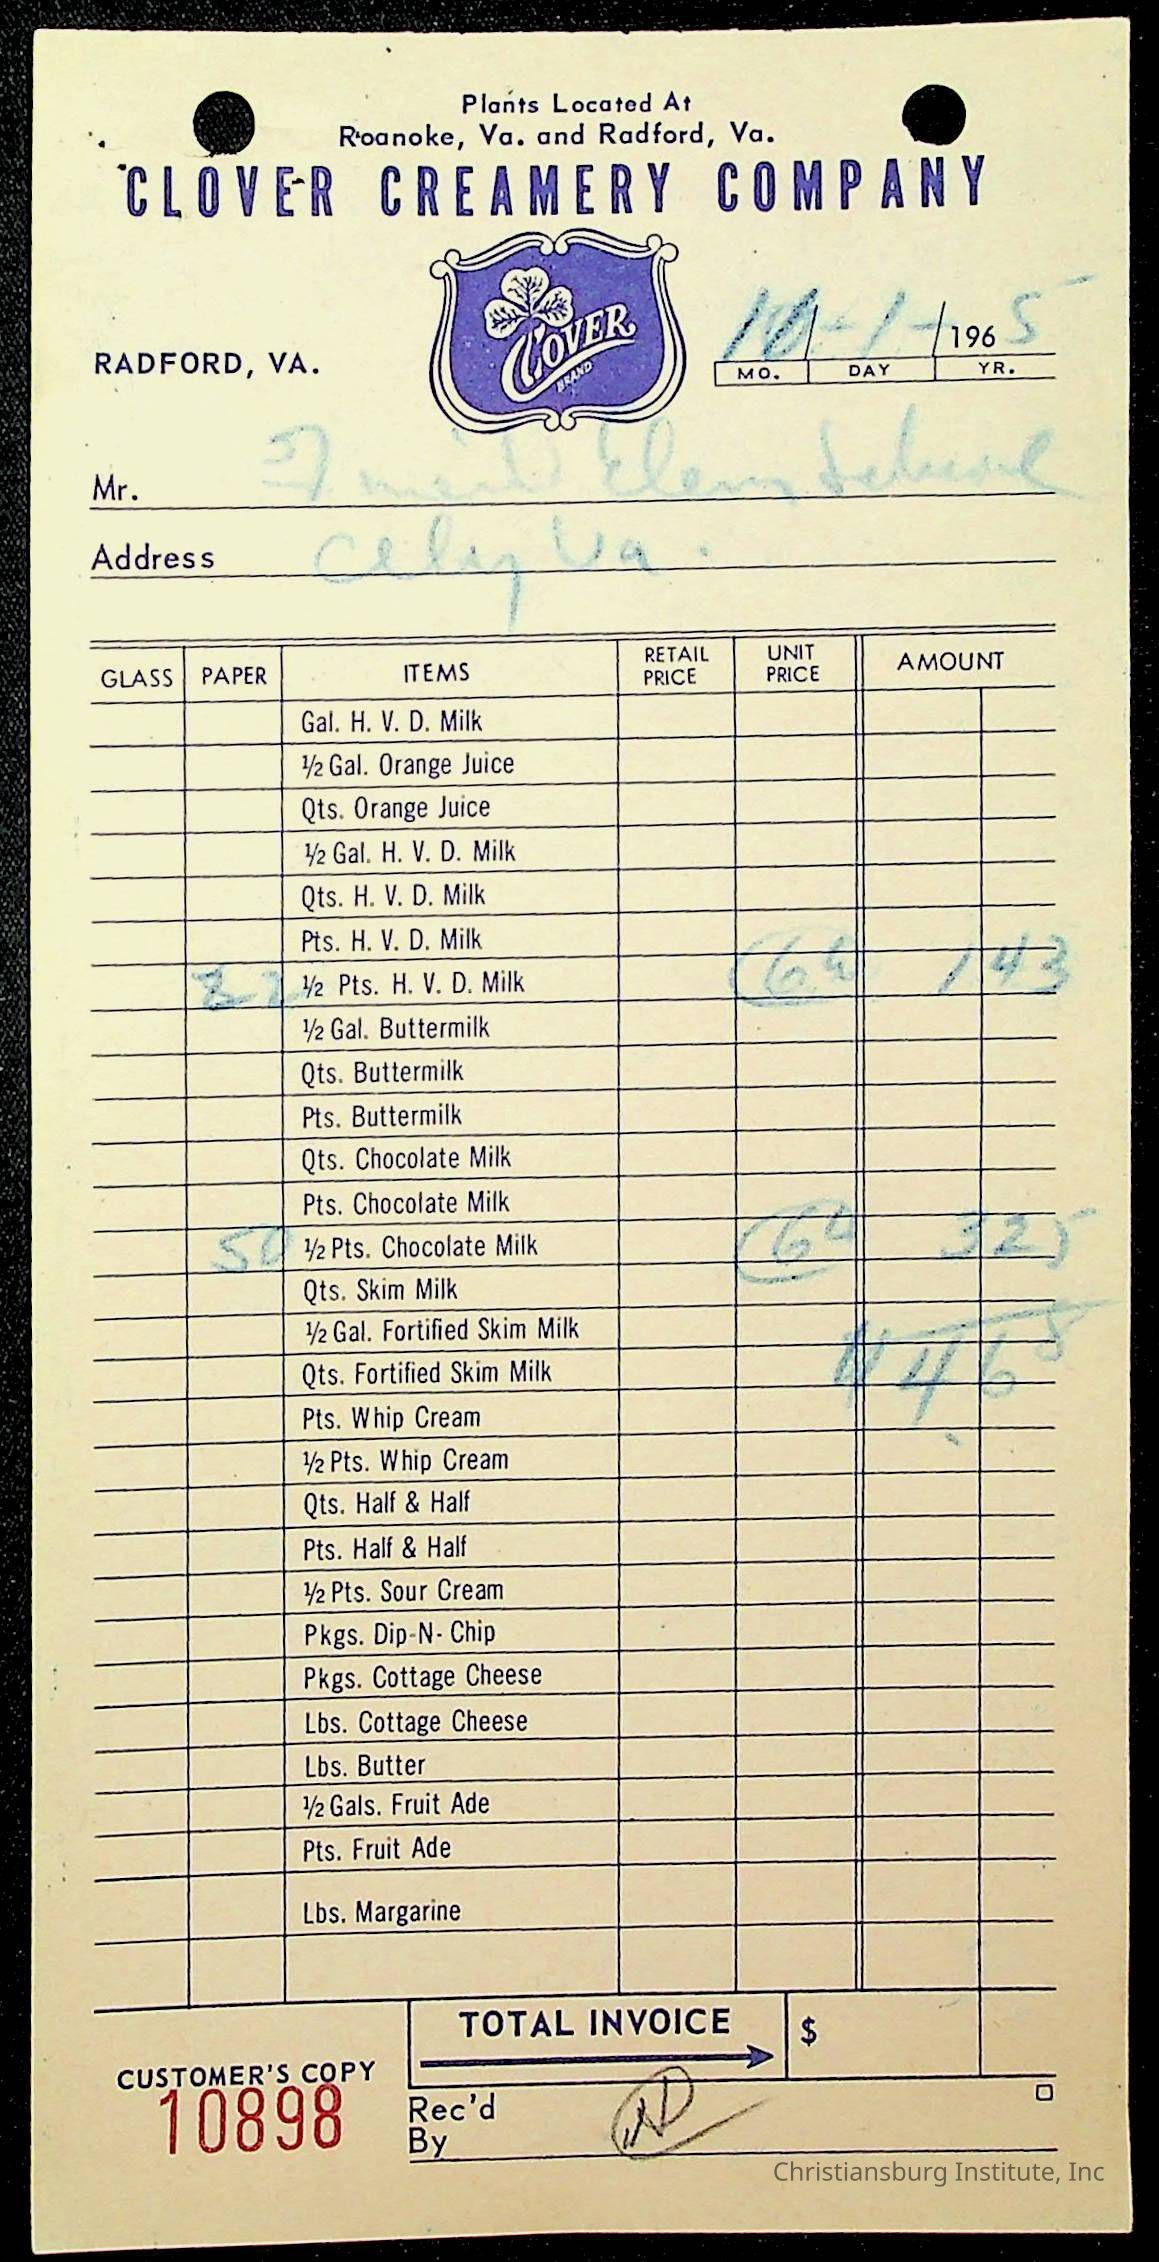 Plants Located At
Roanoke, Va. and Radford, Va.
CLOVER CREAMERY COMPANY
CLOVER
BRAND
RADFORD, VA.
10 - 1 - 1965
MO. DAY YR.
Mr. Elem School
Address Va.
GLASS PAPER ITEMS RETAIL PRICE UNIT PRICE AMOUNT
Gal. H. V. D. Milk
½ Gal. Orange Juice
Qts. Orange Juice
½ Gal. H. V. D. Milk
Qts. H. V. D. Milk
Pts. H. V. D. Milk
½ Pts. H. V. D. Milk 1 43
½ Gal. Buttermilk
Qts. Buttermilk
Pts. Buttermilk
Qts. Chocolate Milk
Pts. Chocolate Milk
50 ½ Pts. Chocolate Milk 3 25
Qts. Skim Milk
½ Gal. Fortified Skim Milk
Qts. Fortified Skim Milk 4 68
Pts. Whip Cream
½ Pts. Whip Cream
Qts. Half & Half
Pts. Half & Half
½ Pts. Sour Cream
Pkgs. Dip-N-Chip
Pkgs. Cottage Cheese
Lbs. Cottage Cheese
Lbs. Butter
½ Gals. Fruit Ade
Pts. Fruit Ade
Lbs. Margarine
TOTAL INVOICE $
CUSTOMER'S COPY
10898
Rec'd
By
Christiansburg Institute, Inc